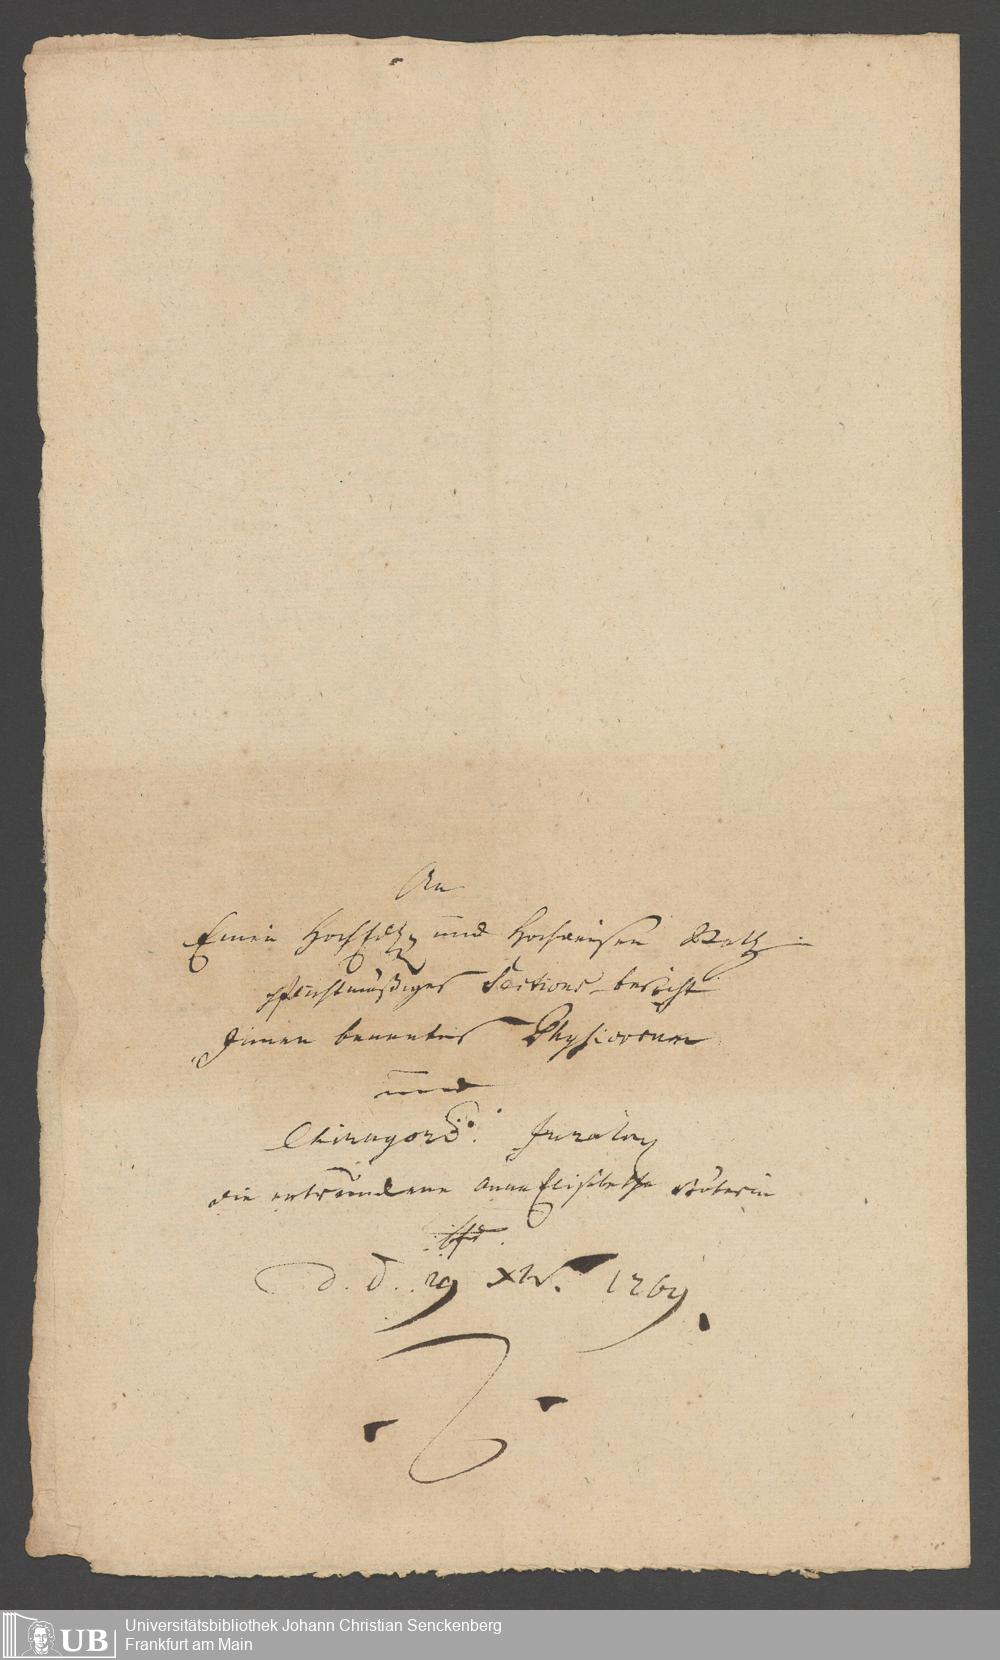 An
Einen HochEdl. und Hochweisen Rath
pflichtmäßiger Sections-bericht
Innen benenter Physicorum
und
Chirurgor. Jurator.
die ertrunckene Anna Elisabetha
btr.
d. d. 29 Xbr. 1769.
Universitätsbibliothek Johann Christian Senckenberg
UB Frankfurt am Main